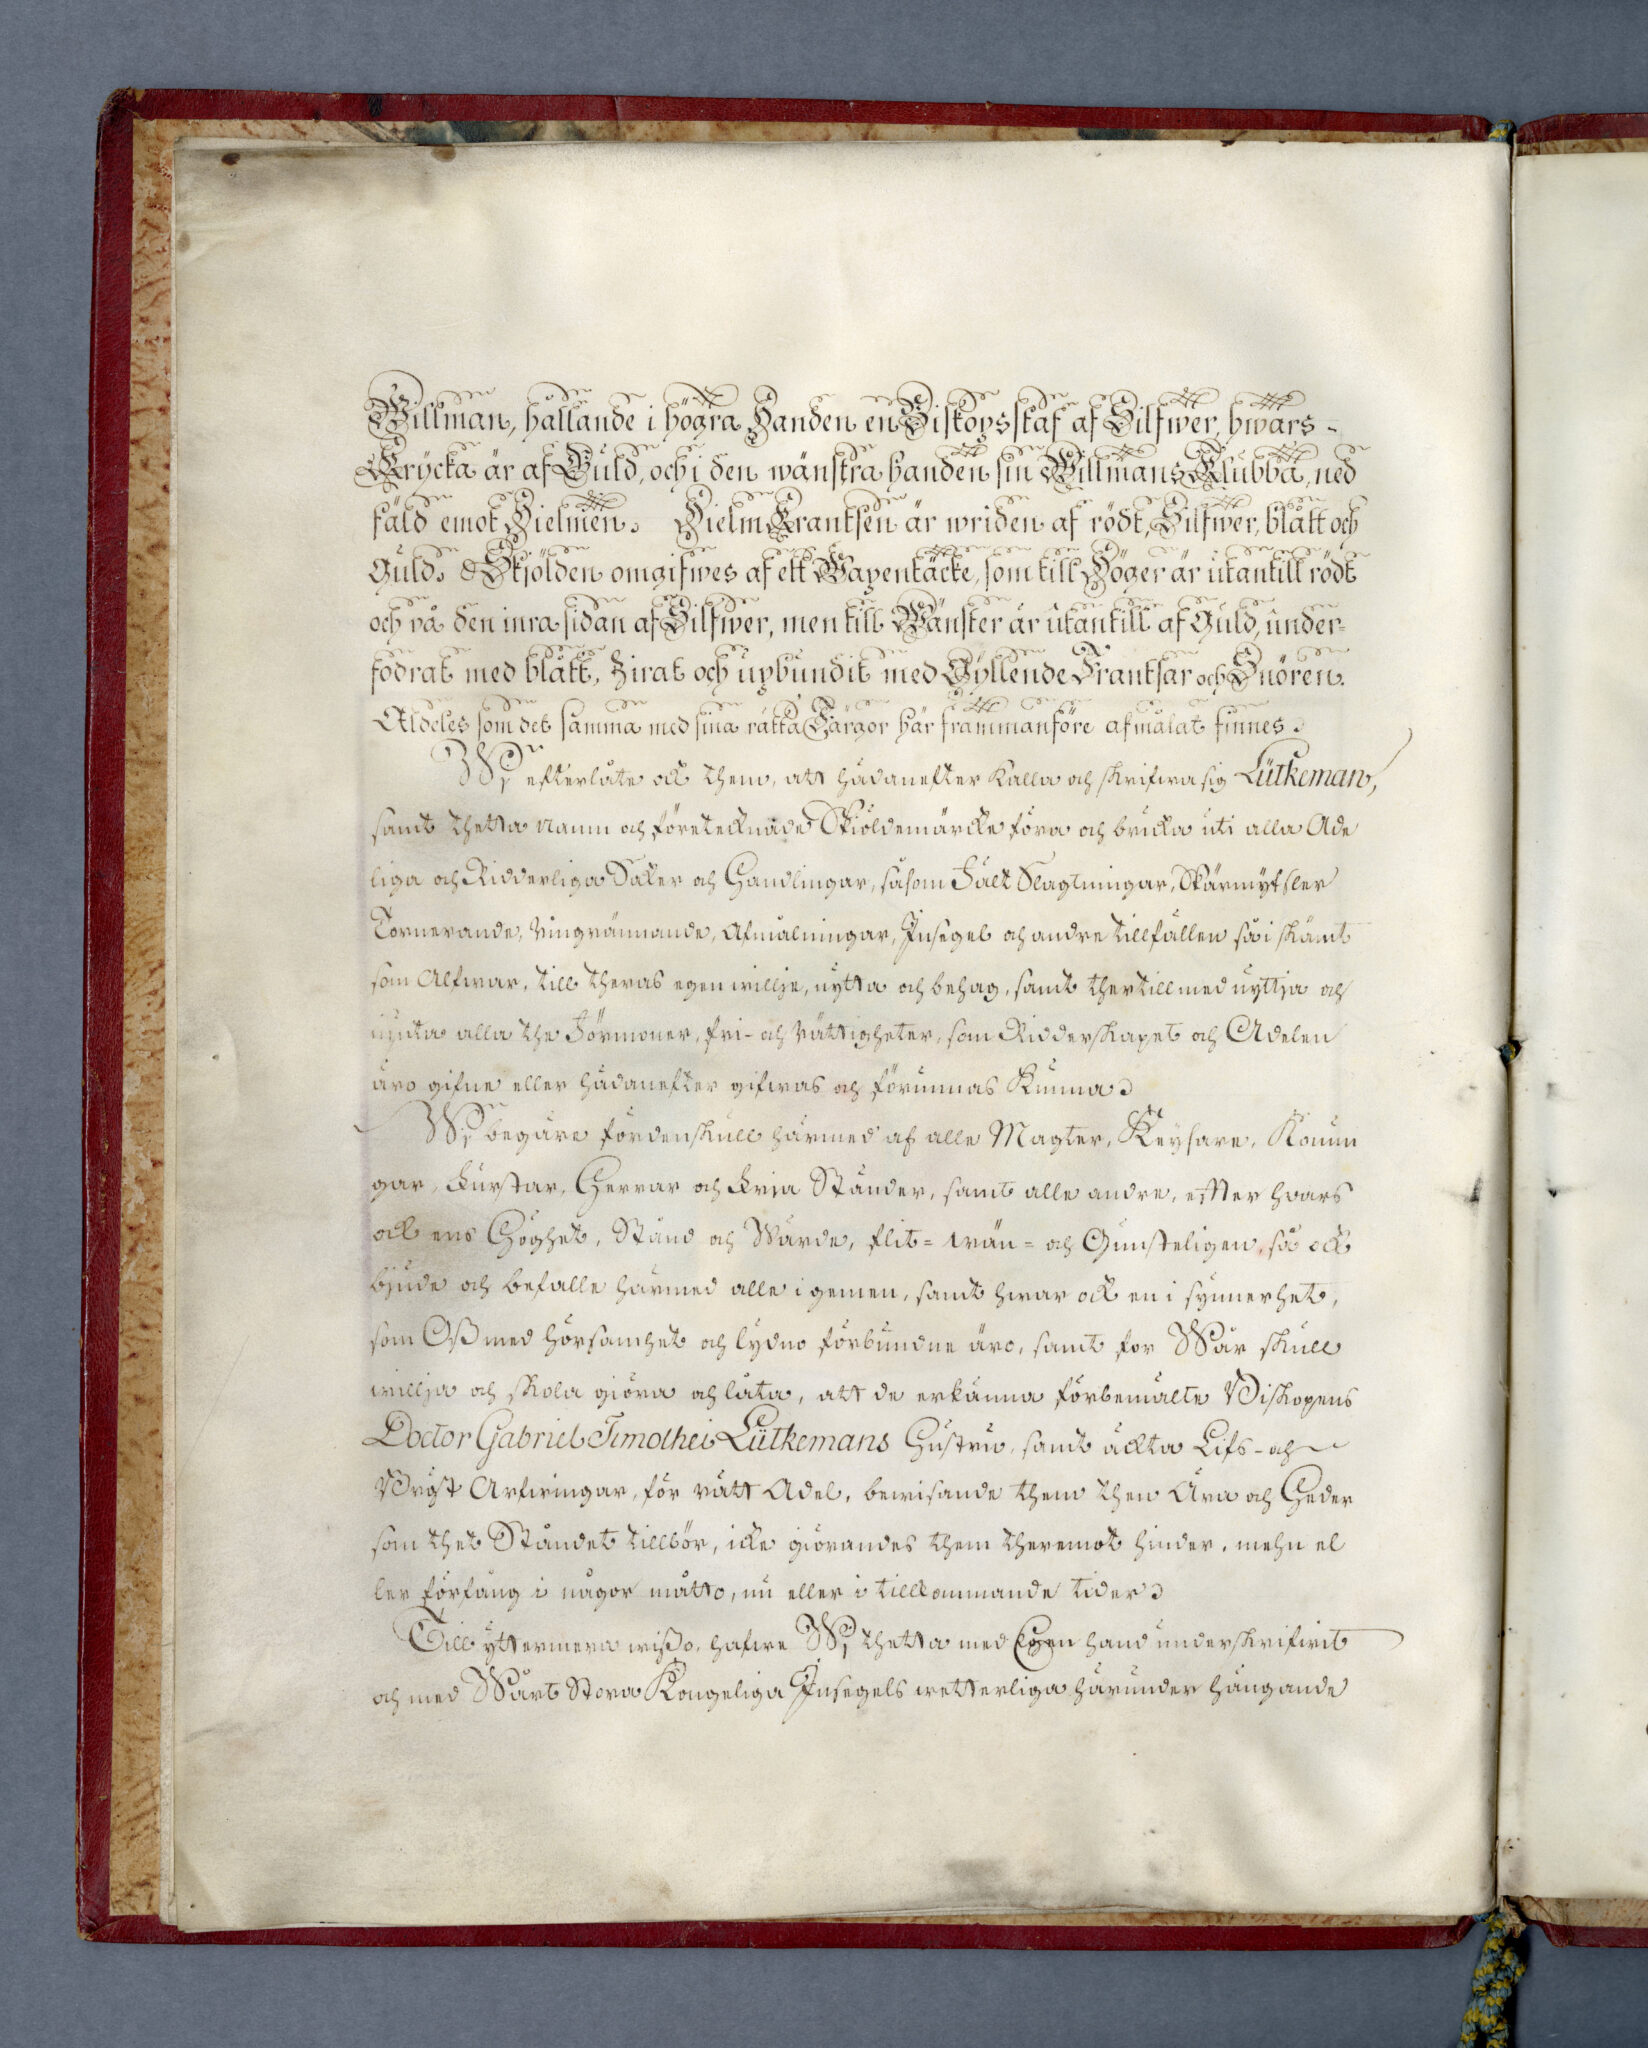 Willman, hållande i högra Handen en Biskopsstaf af Silfwer, hwars-
Krycka är af Guld, och i den wänstra handen sin Willmans Klubba, ned
fäld emot Hielmen. Hielm Krantsen är wriden af rödt, Silfwer, blått och
Guld. Skjölden omgifwes af ett Wapentäcke, som till Höger är utantill rödt
och på den inra sidan af Silfwer, men till Wänster är utantill af Guld, under-
fodrat med blått, Zirat och upbundit med Gyllende Frantsar och Snören.
Aldeles som det samma med sina rätta Färgor här frammanföre afmålat finnes.
Wi efterlåte ock them, att hädanefter Kalla och skrifwa sig Lütkeman,
samt thetta namn och företecknade Skiöldemärcke föra och bruka uti alla Ade
liga och Ridderliga Saker och Handlingar, såsom Fält Slagtningar, Skärmytsler
Tornerande, Ringrännande, Afmålningar, Insegel och andre tillfällen så i skämt
som Alfwar, till theras egen willje, nytta och behag, samt thertill med nyttja och
niuta alla the Förmoner, fri- och rättigheter, som Ridderskapet och Adelen
äro gifne eller hädanefter gifwas och förunnas Kunna.
Wi begäre fördenskull härmed af alle Magter, Keysare, Konun
gar, Furstar, Herrar och Fria Ständer, samt alle andre, efter hwars
ock ens Höghet, Stånd och Wärde, flit= wän= och Gunsteligen, så ock
biude och befalle härmed alle i gemen, samt hwar ock en i synnerhet,
som Oß med hörsamhet och lydno förbundne äro, samt for Wår skull
willja och skola giöra och låta, att de erkänna förbemälte Biskopens
Doctor Gabriel Timothei Lütkemans Hustru, samt äckta Lifs- och
Bröst Arfwingar, för rätt Adel, bewisande them then Ära och Heder
som thet Ståndet tillhör, icke giörandes them theremot hinder, mehn el
ler förfång i någor måtto, nu eller i tillkommande tider.
Till yttermera wißo, hafwe Wi thetta med Egen hand underskrifwit
och med Wårt Stora Kongeliga Insegels wetterliga härunder hängande